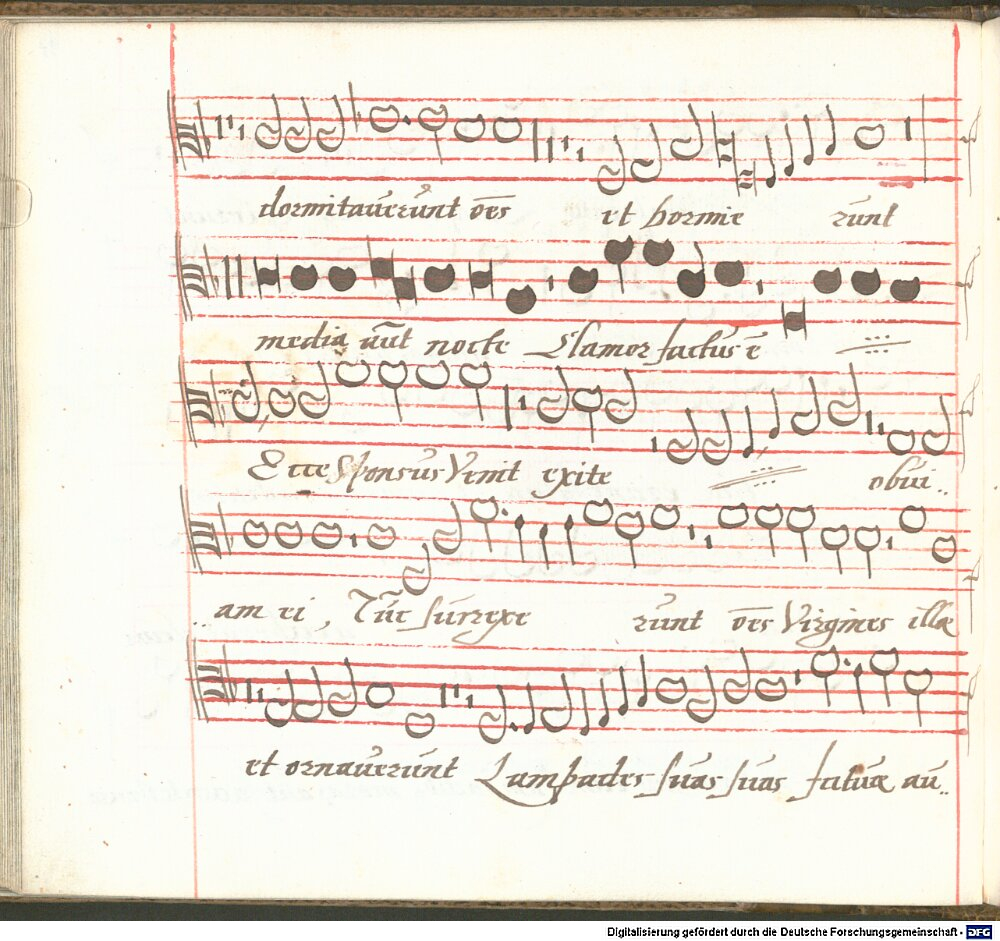 dormitaverũnt oẽs et hormie runt
media aũt nocte Clamor factus ẽ
Ecce Sponsus Venit exite obvi..
..am ei, Tũc surrexe runt oẽs Virgines illæ
et ornaverunt Lampades suas suas fatuæ au..
Digitalisierung gefördert durch die Deutsche Forschungsgemeinschaft - DFG